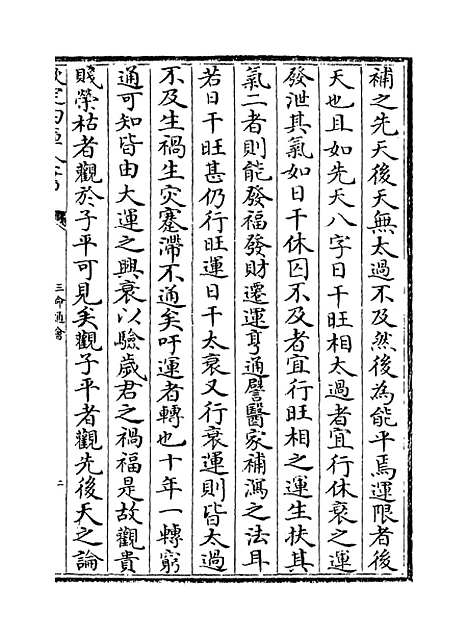 補之先天後天無太過不及然後為能平焉運限者後
天也且如先天八字日干旺相太過者宜行休衰之運
發泄其氣如日干休囚不及者宜行旺相之運生扶其
氣二者則能發福發財遷運亨通譬醫家補瀉之法耳
若日干旺甚仍行旺運日干太衰又行衰運則皆太過
不及生禍生灾蹇滯不通矣吁運者轉也十年一轉窮
通可知皆由大運之興衰以驗歲君之禍福是故觀貴
賤榮枯者觀於子平可見矣觀子平者觀先後天之論
欽定四庫全書
三命通會
二